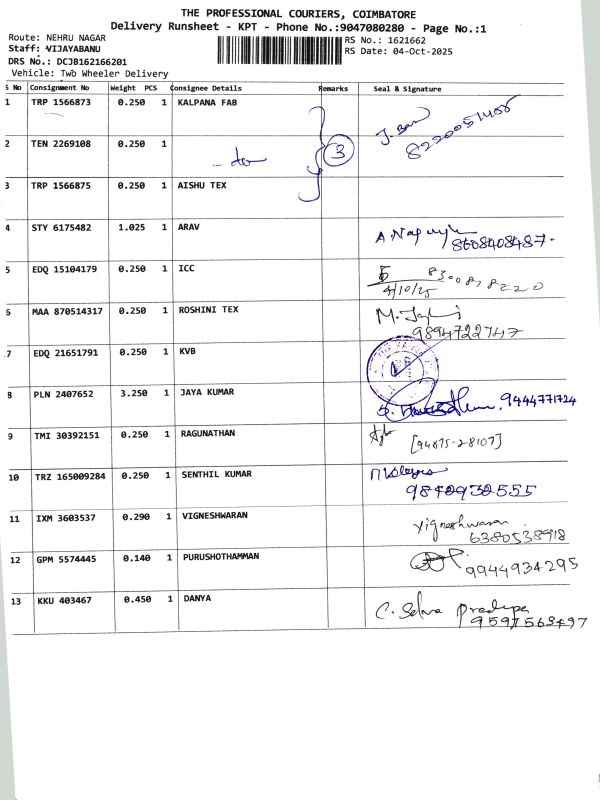 THE PROFESSIONAL COURIERS, COIMBATORE
Delivery Runsheet - KPT - Phone No.:9047080280 - Page No.:1
Route: NEHRU NAGAR
Staff: VIJAYABANU
DRS No.: DCJB162166201
Vehicle: Two Wheeler Delivery
RS No.: 1621662
RS Date: 04-Oct-2025
S No Consignment No Weight PCS Consignee Details Remarks Seal & Signature
1 TRP 1566873 0.250 1 KALPANA FAB 8220051408
2 TEN 2269108 0.250 1 3
3 TRP 1566875 0.250 1 AISHU TEX
4 STY 6175482 1.025 1 ARAV 8608408487.
5 EDQ 15104179 0.250 1 ICC 8300878220
4/10/25
6 MAA 870514317 0.250 1 ROSHINI TEX
9894722747
7 EDQ 21651791 0.250 1 KVB
8 PLN 2407652 3.250 1 JAYA KUMAR 9444771724
9 TMI 30392151 0.250 1 RAGUNATHAN [94875-28107]
10 TRZ 165009284 0.250 1 SENTHIL KUMAR
9840930555
11 IXM 3603537 0.290 1 VIGNESHWARAN vigneshwaran
6380538918
12 GPM 5574445 0.140 1 PURUSHOTHAMMAN
9944934295
13 KKU 403467 0.450 1 DANYA C. Selva Pradeepa
9597563497